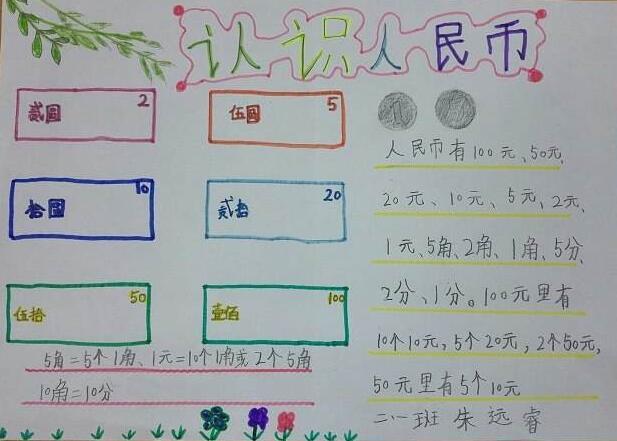 认识人民币
贰圆 2
伍圆 5
拾圆 10
贰拾 20
伍拾 50
壹佰 100
5角=5个1角、1元=10个1角或2个5角
10角=10分
1
人民币有100元、50元、
20元、10元、5元、2元、
1元、5角、2角、1角、5分、
2分、1分。100元里有
10个10元，5个20元，2个50元，
50元里有5个10元
二一班 朱远睿